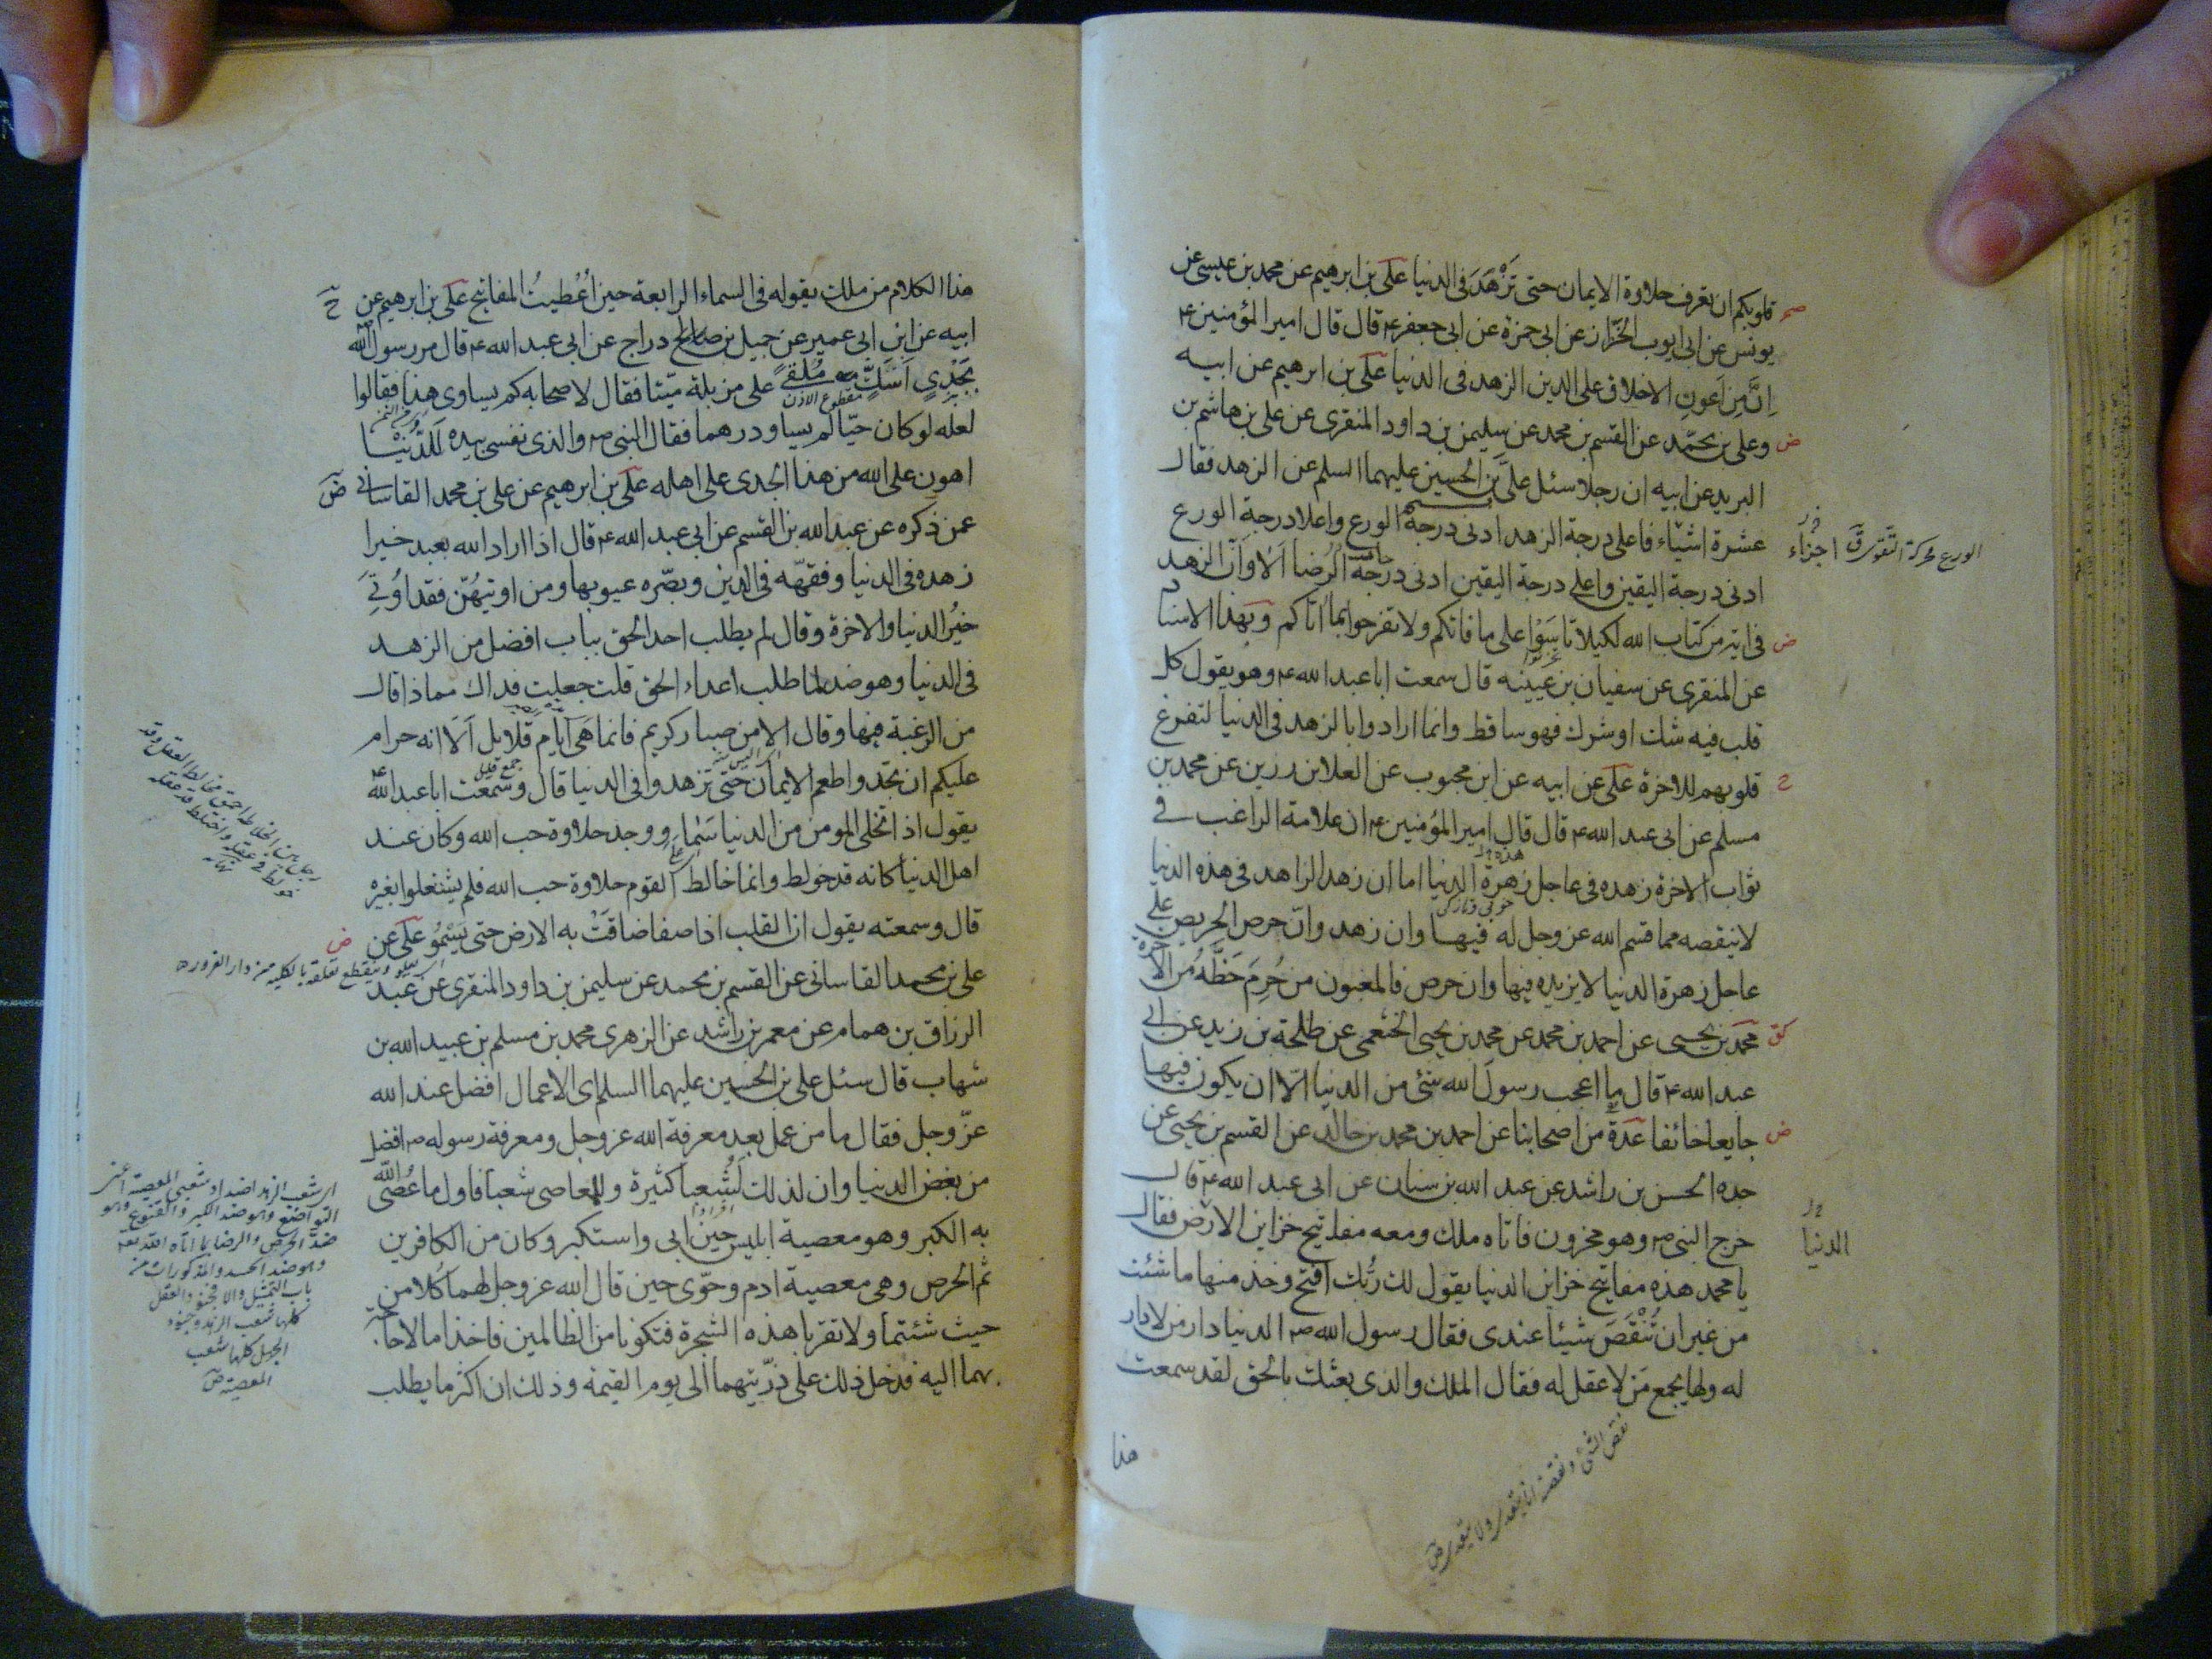 قلوبكم ان تعرف حلاوة الايمان حتى تَزْهَدَ فى الدنيا على بن ابرهيم عن محمد بن عيسى عن
يونس عن ابى ايوب الخزاز عن ابى حمزة عن ابى جعفر ع قال قال امير المؤمنين ع
اِنَّ مِن اَعونِ الاخلاق على الدين الزهد فى الدنيا على بن ابرهيم عن ابيه
وعلى بن محمّد عن القسم بن محمد عن سليمن بن داود المنقرى عن على بن هاشم بن
البريد عن ابيه ان رجلا سئل علىَّ بن الحسين عليهما السلم عن الزهد فقال
عشرة اشياء فاعلى درجة الزهد ادنى درجة الورع واعلا درجة الورع
ادنى درجة اليقين واعلى درجة اليقين ادنى درجة الرضا اَلا وَانّ الزهد
فى اية من كتاب الله لكيلا تاسَوْا على ما فاتكم ولا تفرحوا بما اتاكم وبهذا الاسناد
عن المنقرى عن سفيان بن عيينه قال سمعت ابا عبد الله ع وهو يقول كل
قلب فيه شك او شرك فهو ساقط وانما ارادوا بالزهد فى الدنيا لتفرغ
قلوبهم للاخرة على عن ابيه عن ابن محبوب عن العلا بن رزين عن محمد بن
مسلم عن ابى عبد الله ع قال قال امير المؤمنين ع ان علامة الراغب فى
ثواب الاخرة زهده فى عاجل زهرة الدنيا اما ان زهد الزاهد فى هذه الدنيا
لا ينقصه مما قسم الله عز وجل له فيها وان زهد وانّ حرص الحريص على
عاجل زهرة الدنيا لا يزيده فيها وان حرص فالمغبون من حُرِمَ حَظَّهُ من الآخرة
محمد بن يحيى عن احمد بن محمد عن محمد بن يحيى الخثعمى عن طلحة بن زيد عن ابى
عبد الله ع قال ما اعجب رسولَ الله شئ من الدنيا الّا ان يكون فيها
جايعا خائفا عدة من اصحابنا عن احمد بن محمد بن خالد عن القسم بن يحيى عن
جده الحسن بن راشد عن عبد الله بن سنان عن ابى عبد الله ع قال
خرج النبى ص وهو محزون فاتاه ملك ومعه مفاتيح خزاين الارض فقال
يا محمد هذه مفاتيح خزاين الدنيا يقول لك ربُّك افتح وخذ منها ما شئت
من غير ان تُنْقَصَ شيئا عندى فقال رسول الله ص الدنيا دار من لا دار
له ولها يجمع مَن لا عقل له فقال الملك والذى بعثك بالحق لقد سمعت
هذا
الورع محركة التقوى ق
اجزاء
الدنيا
هذا الكلام من ملك يقوله فى السماء الرابعة حين اُعْطيتُ المفاتيح على بن ابرهيم عن
ابيه عن ابن ابى عمير عن جميل بن صالح دراج عن ابى عبد الله ع قال مر رسول الله
بجَدْىٍ اَسَكَّ مُلْقىً على مزبلة ميّتا فقال لاصحابه كم يساوى هذا فقالوا
مقطوع الاذن
لعله لو كان حيّا لم يساو درهما فقال النبى ص والذى نفسى بيده لَلدّنيا
اهون على الله من هذا الجدى على اهله على بن ابرهيم عن على بن محمد القاسانى
عمن ذكره عن عبد الله بن القسم عن ابى عبد الله ع قال اذا اراد الله بعبد خيرا
زهده فى الدنيا وفقهّه فى الدين وبصّره عيوبها ومن اوتيهُنّ فقد اُوتِىَ
خيرُ الدنيا والاخرة وقال لم يطلب احد الحق بباب افضل من الزهد
فى الدنيا وهو ضد لما طلب اعداء الحق قلت جعلت فداك مماذا قال
من الرغبة فيها وقال الا من صبار كريم فانما هى ايام قلايل اَلَا انه حرام
عليكم ان تجدوا طعم الايمان حتى تزهدوا فى الدنيا قال وسمعت ابا عبد الله
يقول اذا تخلى المومن من الدنيا سَمَا ووجد حلاوة حب الله وكان عند
اهل الدنيا كانه قد خولط وانما خالط القوم حلاوة حب الله فلم يشتغلوا بغيره
قال وسمعته يقول ان القلب اذا صفا ضاقَتْ به الارض حتى يَسْمُوَ على عن
على بن محمد القاسانى عن القسم بن محمد عن سليمن بن داود المنقرى عن عبد
الرزاق بن همام عن معمر بن راشد عن الزهرى محمد بن مسلم بن عبيد الله بن
شهاب قال سئل على بن الحسين عليهما السلم اى الاعمال افضل عند الله
عزّ وجل فقال ما من عمل بعد معرفة الله عز وجل ومعرفة رسوله ص افضل
من بغض الدنيا وان لذلك لَشُعبا كثيرة وللمعاصى شعبا فاول ما عُصى الله
به الكبر وهو معصية ابليس حين ابى واستكبر وكان من الكافرين
ثم الحرص وهى معصية ادم وحوّى حين قال الله عز وجل لهما كُلا من
حيث شئتما ولا تقربا هذه الشجرة فتكونا من الظالمين فاخذا ما لا حاجة
بهما اليه فدخل ذلك على ذرّيتهما الى يوم القيمة وذلك ان اكثر ما يطلب